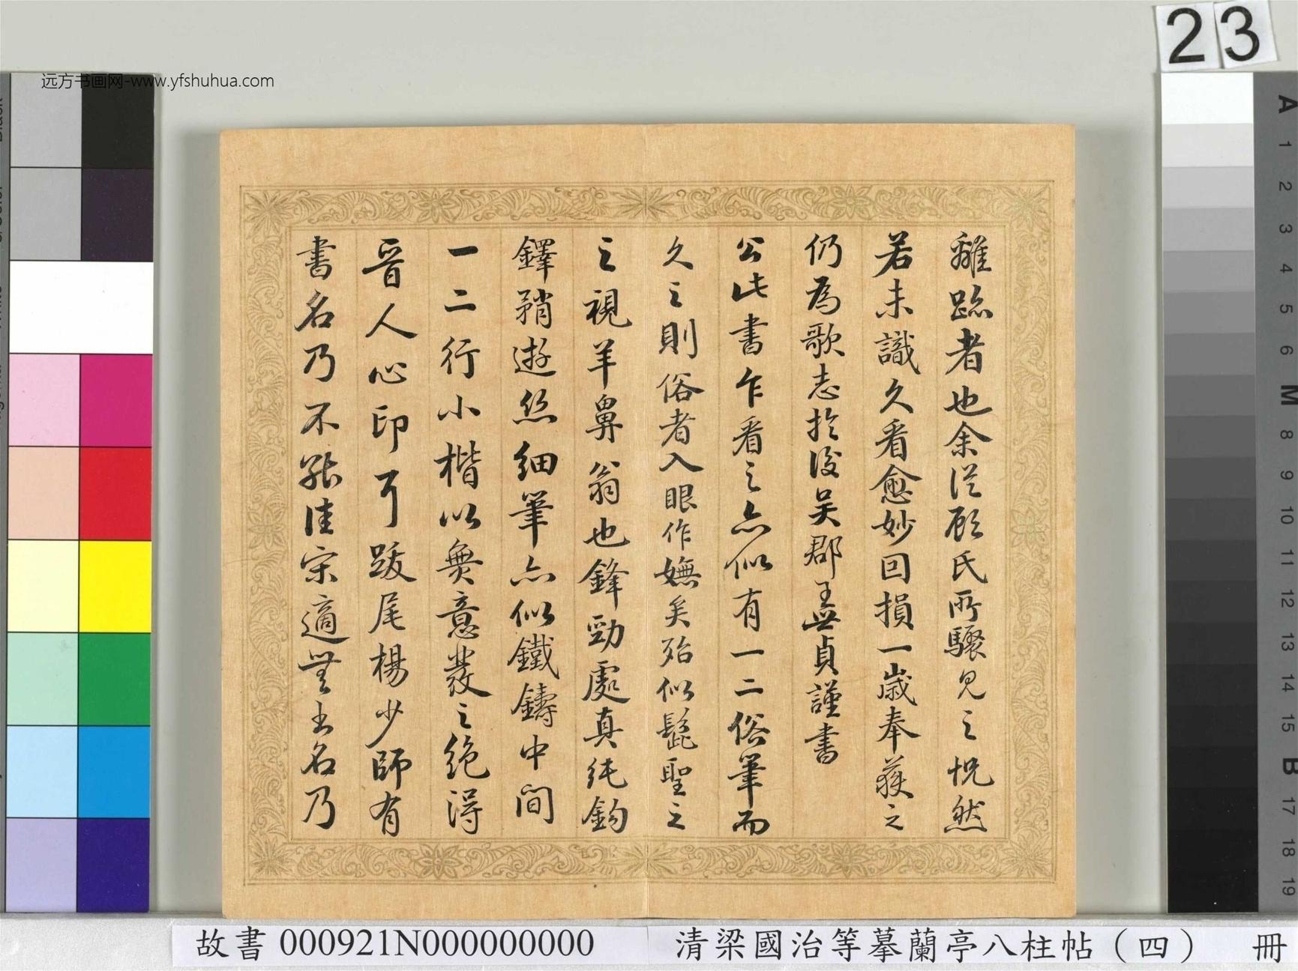 23
远方书画网-www.yfshuhua.com
離跡者也余從顧氏所驟見之恍然
若未識久看愈妙回損一歲奉獲之
仍為歌志於後吳郡王世貞謹書
公此書乍看之亦似有一二俗筆而
久之則俗者入眼作嫵矣殆似髭聖之
之視羊鼻翁也鋒勁處真純鉤
鐸矟遊絲細筆亦似鐵鑄中間
一二行小楷以無意發之絕得
晉人心印耳跋尾楊少師有
書名乃不能佳宋適無書名乃
A
1
2
3
4
5
6
M
8
9
10
11
12
13
14
15
B
17
18
19
故書 000921N000000000
清梁國治等摹蘭亭八柱帖（四） 冊